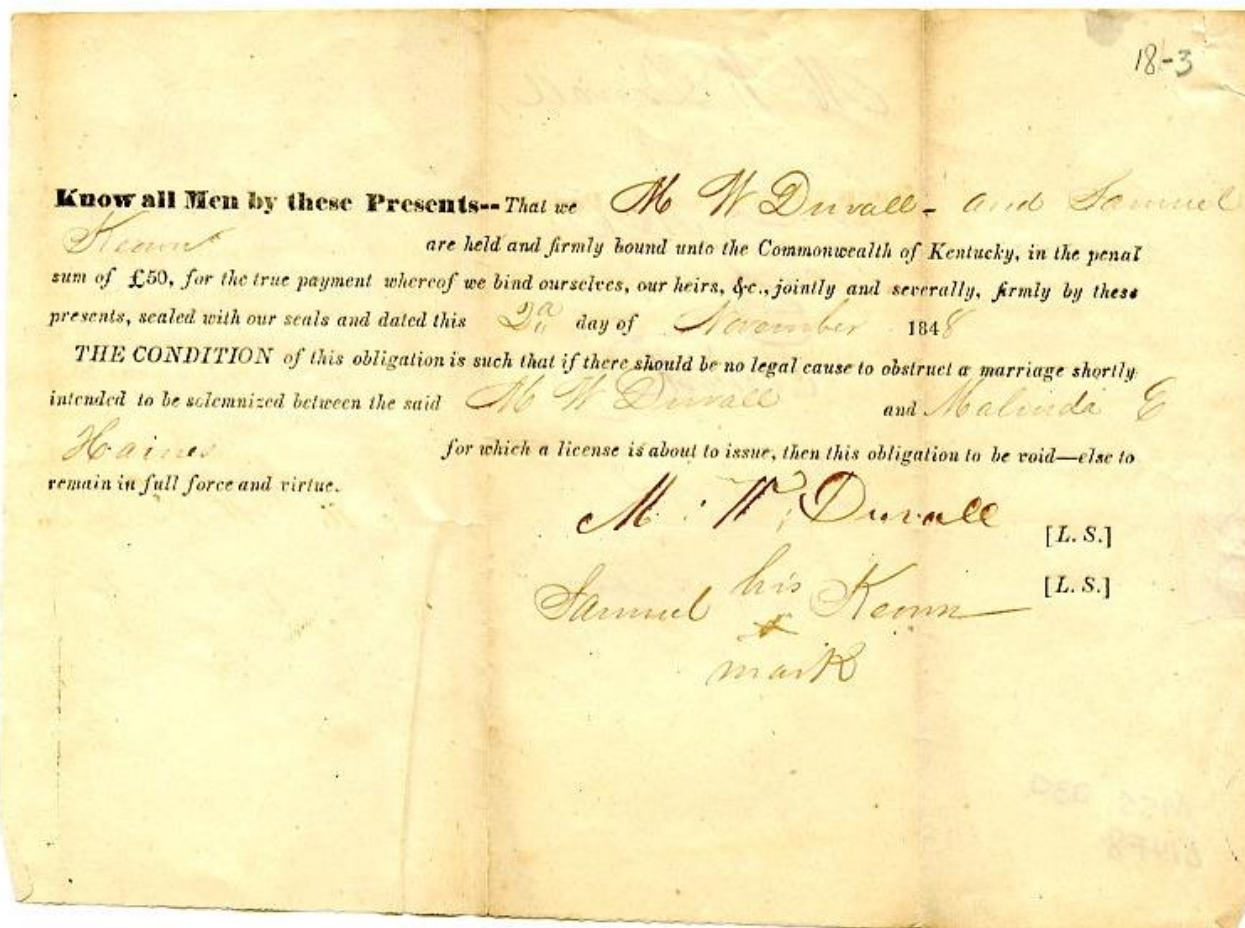 18-3
Know all Men by these Presents--That we M W Duvall - and Samuel
Keown are held and firmly bound unto the Commonwealth of Kentucky, in the penal
sum of £50, for the true payment whereof we bind ourselves, our heirs, &c., jointly and severally, firmly by these
presents, sealed with our seals and dated this 2d day of November 1848
THE CONDITION of this obligation is such that if there should be no legal cause to obstruct a marriage shortly
intended to be solemnized between the said M W Duvall and Malinda E
Haines for which a license is about to issue, then this obligation to be void—else to
remain in full force and virtue.
M. W. Duvall [L. S.]
Samuel his Keown [L. S.]
x
mark